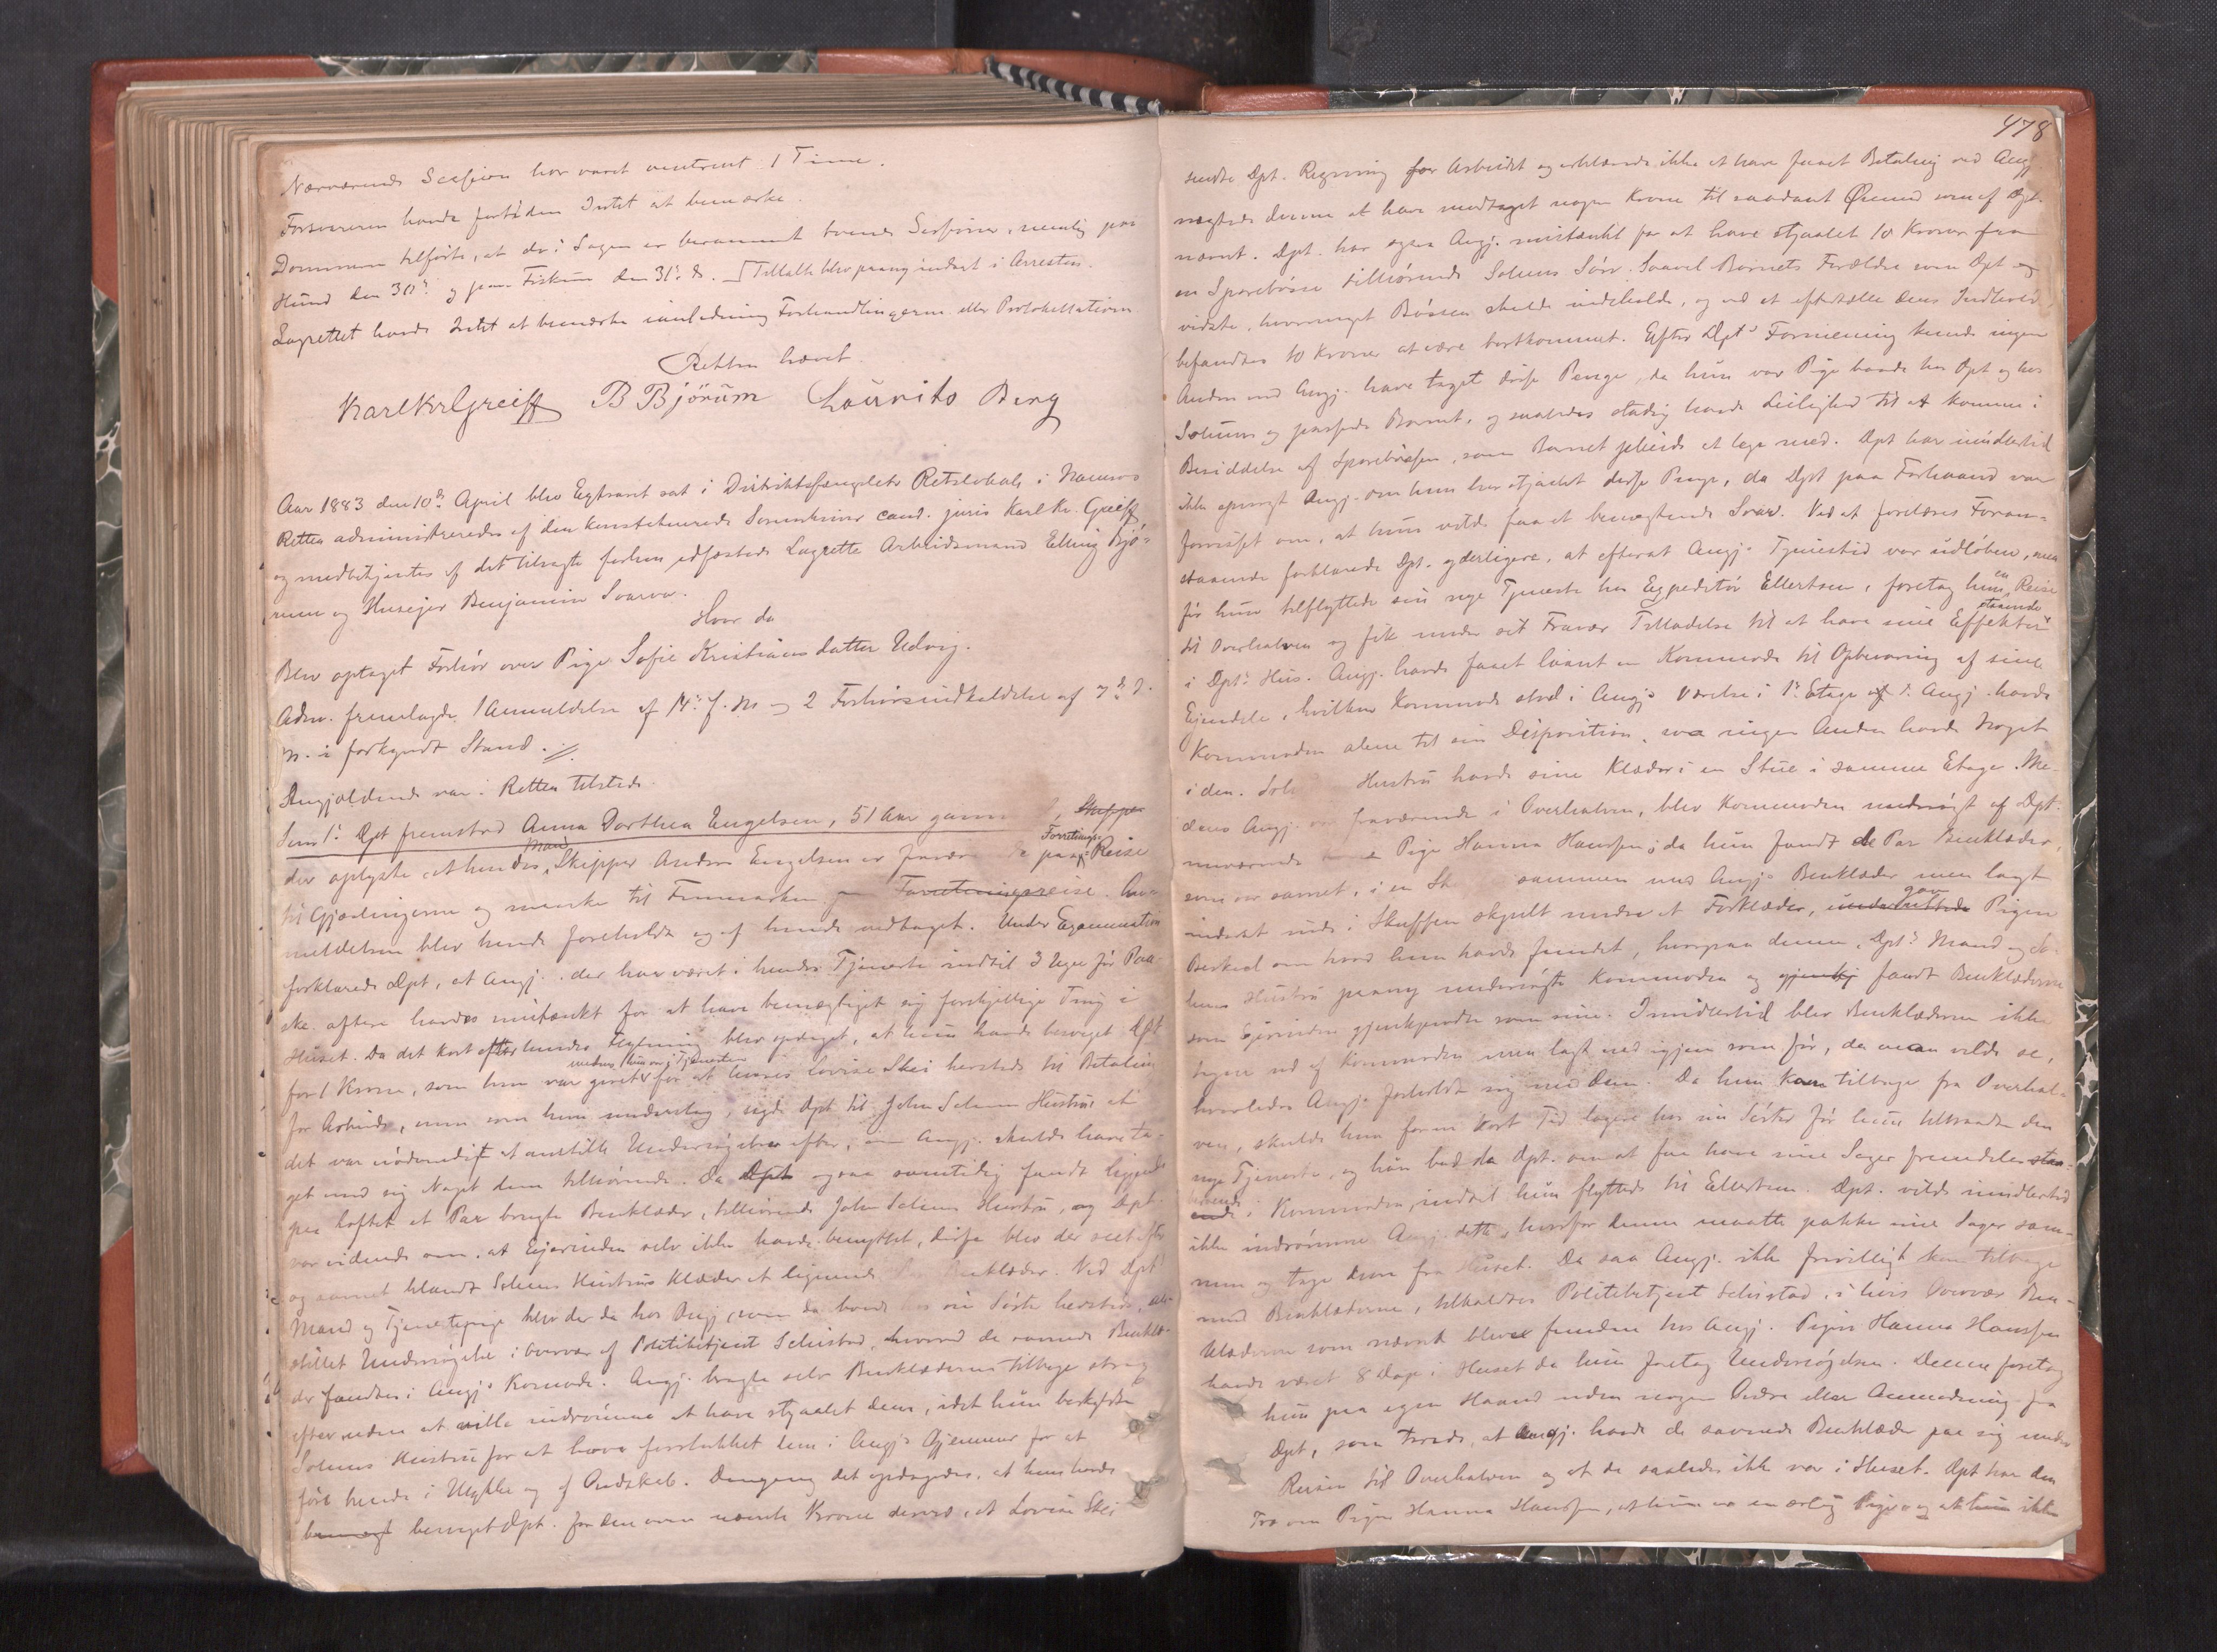 Nærværende Session har varet omtrent 1 Time.
Forsvareren havde fortiden Intet at bemærke.
Dommeren tilførte, at der i Sagen er berammet tvende Sessioner, nemlig paa
Hund den 30te og paa Fiskum den 31te ds. Tiltalte blev paany indsat i Arresten.
Lagrettet havde Intet at bemærke i anledning Forhandlingerne eller Protokollationen
Retten hævet.
Karl Kr Greiff B Bjørum Laurits Berg
Aar 1883 den 10de April blev Extraret sat i Distriktsfængslets Retslokale i Namsos
Retten administreredes af den konstituerede Sorenskriver cand. juris Karl Kr. Greiff
og medbetjentes af det tilsagte forhen edfæstede Lagrette Arbeidsmand Elling Bjø-
rum og Huseier Benjamin Svarva.
Hvor da
Blev optaget Forhør over Pige Sofie Kristiansdatter Udvig.
Adm. fremlagde 1 Anmeldelse af 14de f. M. og 2 Forhørsindkaldelse af 7de d.
M. i forkyndt Stand.
Angjældende var i Retten tilstede.
Som 1ste Dpt fremstod Anna Dorthea Engelsen, 51 Aar gammel, Skipper
der oplyste at hendes Mand, Skipper Anders Engelsen er fraværende paa Forretnings-Reise
til Gjæslingerne og muske til Finmarken paa Forretningsreise. An-
meldelsen blev hende foreholdt og af hende vedtaget. Under Examination
forklarede Dpt, at Angj. der har været i hendes Tjeneste indtil 3 Uger før Paa-
ske oftere havdes mistænkt for at have bemægtiget sig forskjellige Ting i
Huset. Da det kort efter hendes Flytning blev opdaget, at hun havde besveget Dpt
for 1 Krone, som hun medens hun var i Tjenesten var givet for at levere Lovise Skei hersteds til Betaling
for Arbeide, men som hun underslog, sagde Dpt til John Solums Hustru at
det var nødvendigt at anstille Undersøgelse efter, om Angj. skulde have ta-
get med sig Noget dem tilhørende. Da Dpt ogsaa samtidig fandt liggende
paa Loftet et Par brugte Benklæder, tilhørende John Solums Hustru, og Dpt
var vidende om, at Eierinden selv ikke havde benyttet disse blev der seet efter
og savnet blandt Solums Hustrus Klæder et lignende Par Benklæder. Ved Dpts
Mand og Tjenestepige blev der da hos Angj, som da boede hos sin Søster hersteds, an-
stillet Undersøgelse i Overvær af Politibetjent Selnstad, hvorved de savnede Benklæ-
der fandtes i Angjs Komode. Angj. bragte selv Benklæderne tilbage strax
efter uden at ville indrømme at have stjaalet dem, idet hun beskyldte
Solums Hustru for at have forstukket dem i Angjs Gjemmer for at
føre hende i Ulykke og af Ondskab. Dengang det opdagedes, at hun havde
besveget Dpt. for den oven nævnte Krone derved, at Lovise Skei
478
sendte Dpt. Regning for Arbeidet og erklærede ikke at have faaet Betaling ved Angj
nægtede denne at have modtaget nogen Krone til saadant Øiemed som af Dpt.
nævnt. Dpt. har ogsaa Angj. mistænkt for at have stjaalet 10 Kroner fra
en Sparebøsse tilhørende Solums Søn. Saavel Barnets Forældre som Dpt og
vidste, hvormeget Bøssen skulde indeholde, og ved at eftertælle dens Indhold
befandtes 10 Kroner at være bortkommet. Efter Dpts Formening kunde ingen
Anden end Angj. have taget disse Penge, da hun var Pige baade hos Dpt og hos
Solums og passede Barnet, og saaledes stadig havde Leilighed til at komme i
Besiddelse af Sparebøssen, som Barnet pleiede at lege med. Dpt har imidlertid
ikke spurgt Angj. om hun har stjaalet disse Penge, da Dpt paa Forhaand var
forvisset om, at hun vilde faa et benægtende Svar. Ved at forelæses Foran-
staaende forklarede Dpt. yderligere, at efterat Angjs Tjenestetid var udløben, men
før hun tilflyttede sin nye Tjeneste hos Expeditør Ellertsen, foretog hun en Reise
til Overhalven og fik under sit Fravær Tilladelse til at have sine Effekter staaende
i Dpts Hus. Angj. havde faaet laant en Kommode til Opbevaring af sine
Eiendele, hvilken Kommode stod i Angjs Værelse i 1ste Etage. Angj. havde
Kommoden alene til sin Disposition, saa ingen Anden havde Noget
i den. Hustru havde sine Klæder i en Stue i samme Etage. Me-
dens Angj. var fraværende i Overhalven, blev Kommoden undersøgt af Dpt.
nuværende Pige Hanna Hanssen; da hun fandt de Par Benklæder,
som var savnet, i en sammen med Angjs Benklæder men lagt
inderst inde i Skuffen skjult under et Forklæde, underrettede gav Pigen
Besked om hvad hun havde fundet, hvorpaa denne, Dpts Mand og So-
lums Hustru paany undersøgte Kommoden og gjenkj fandt Benklæderne
som Eierinden gjenkjendte som sine. Imidlertid blev Benklæderne ikke
tagne ud af Kommoden men lagt ned igjen som før, da man vilde se,
hvorledes Angjs forholdt sig med dem. Da hun kom tilbage fra Overhal-
ven, skulde hun for en kort Tid logere hos sin Søster før hun tiltraadte den
nye Tjeneste, og hun bad da Dpt. om at faa have sine Sager fremdeles staa-
ende i Kommoden, indtil hun flyttede til Ellertsen. Dpt. vilde imidlertid
ikke indrømme Angj. dette, hvorfor denne maatte pakke sine Sager sam-
men og tage dem fra Huset. Da saa Angj. ikke frivilligt kom tilbage
med Benklæderne, tilkaldtes Politibetjent Selnstad, i hvis Overvær Ben-
klæderne som nævnt bleve fundne hos Angj. Pigen Hanna Hanssen
havde været 8 Dage i Huset da hun foretog Undersøgelsen. Denne foretog
hun paa egen Haand uden nogen Ordre eller Anmodning fra
Dpt, som troede, at Angj. havde de savnede Benklæder paa sig under
Reisen til Overhalven og at de saaledes ikke var i Huset. Dpt har den
Tro om Pigen Hanna Hanssen, at hun er en ærlig Pige og at hun ikke